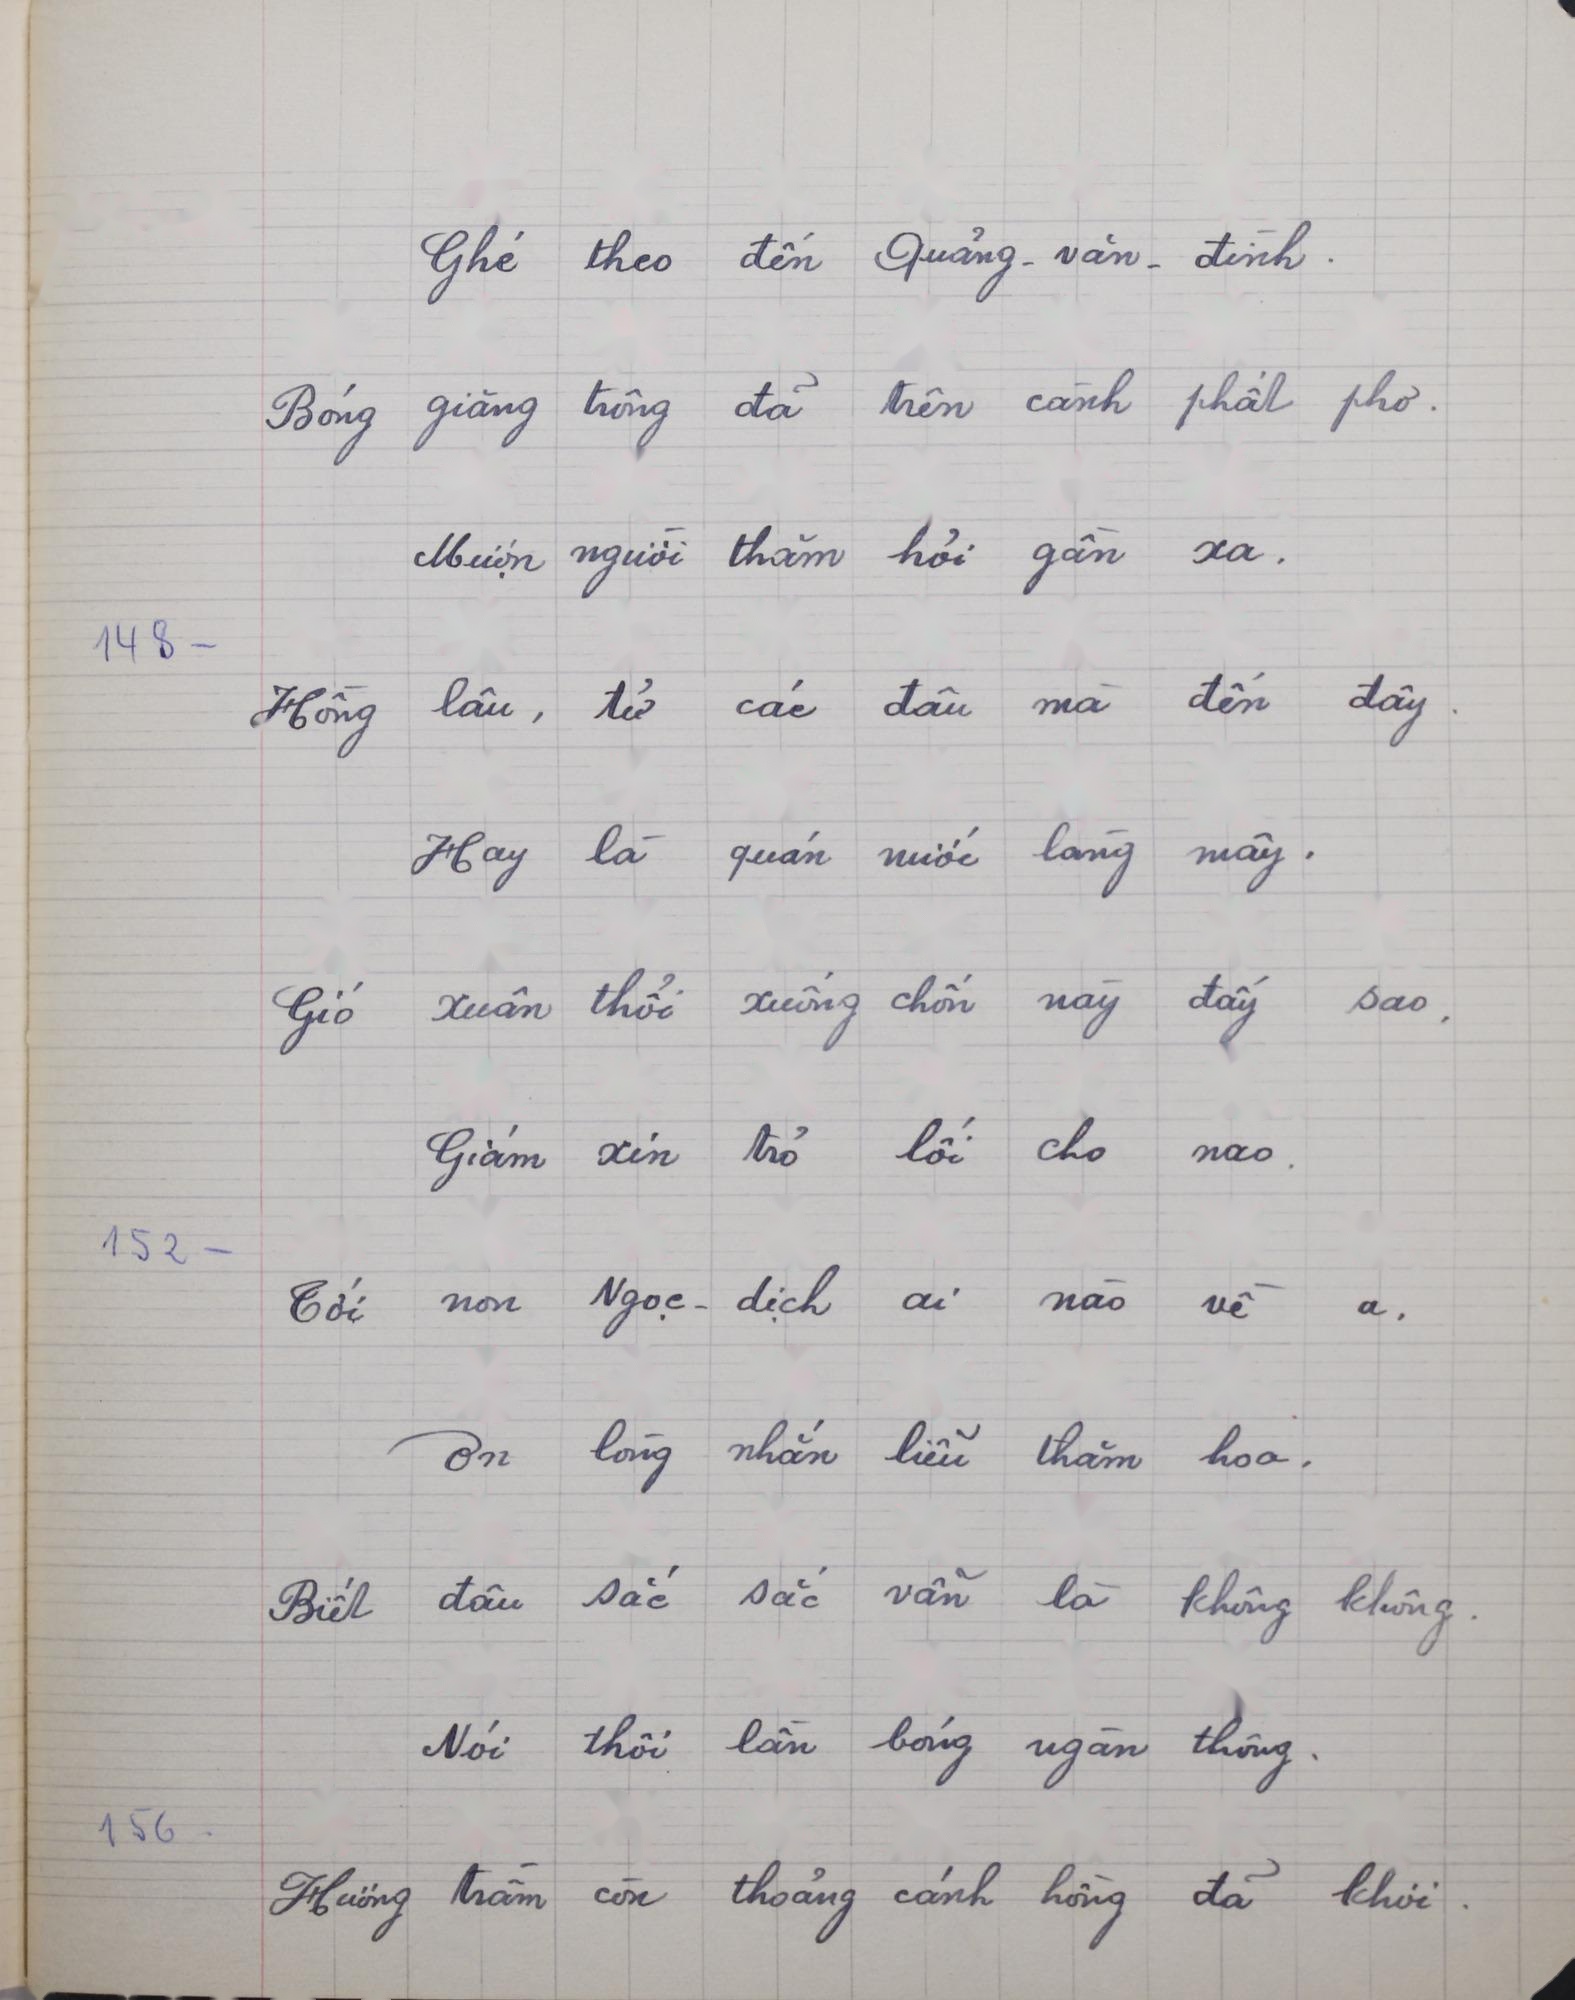 Ghé theo đến Quảng-văn-đình.
Bóng giăng trông đã trên cành phất phơ.
Mượn người thăm hỏi gần xa.
148-
Hồng lâu, tử các đâu mà đến đây.
Hay là quán nước làng mây.
Gió xuân thổi xuống chốn này đấy sao.
Giám xin trỏ lối cho nao.
152-
Tới non Ngọc-dịch ai nào về a.
Ơn lòng nhắn liễu thăm hoa.
Biết đâu sắc sắc vẫn là không không.
Nói thôi lần bóng ngàn thông.
156-
Hương trầm còn thoảng cánh hồng đã khơi.